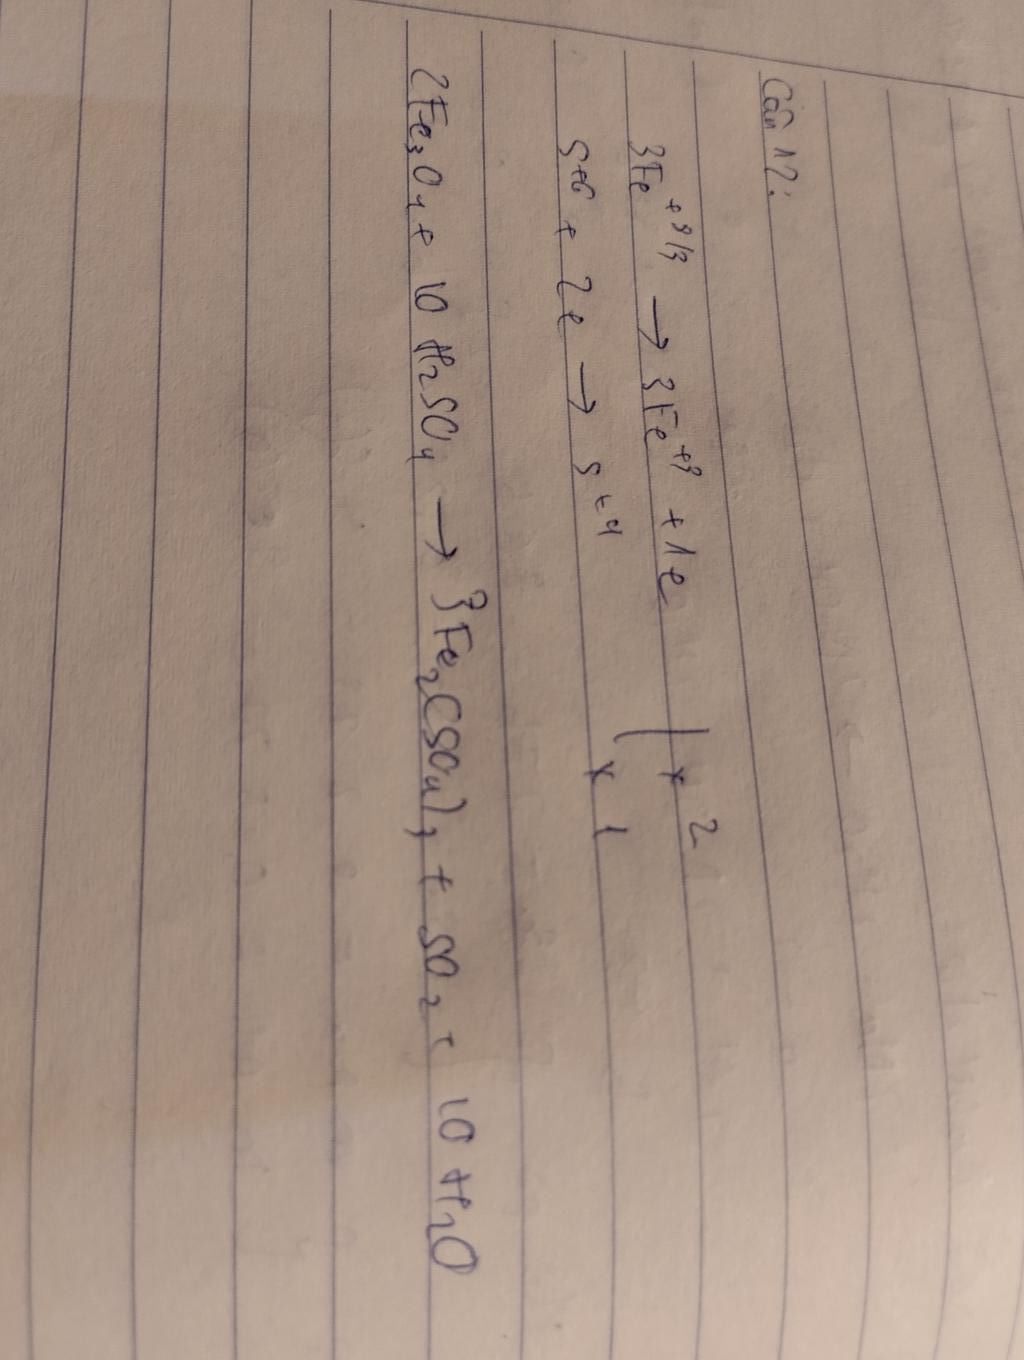 Câu 12:
3Fe⁺⁸/³ → 3Fe⁺³ + 1e | x 2
S⁺⁶ + 2e → S⁺⁴ | x 1
2Fe₃O₄ + 10 H₂SO₄ → 3Fe₂(SO₄)₃ + SO₂ + 10 H₂O